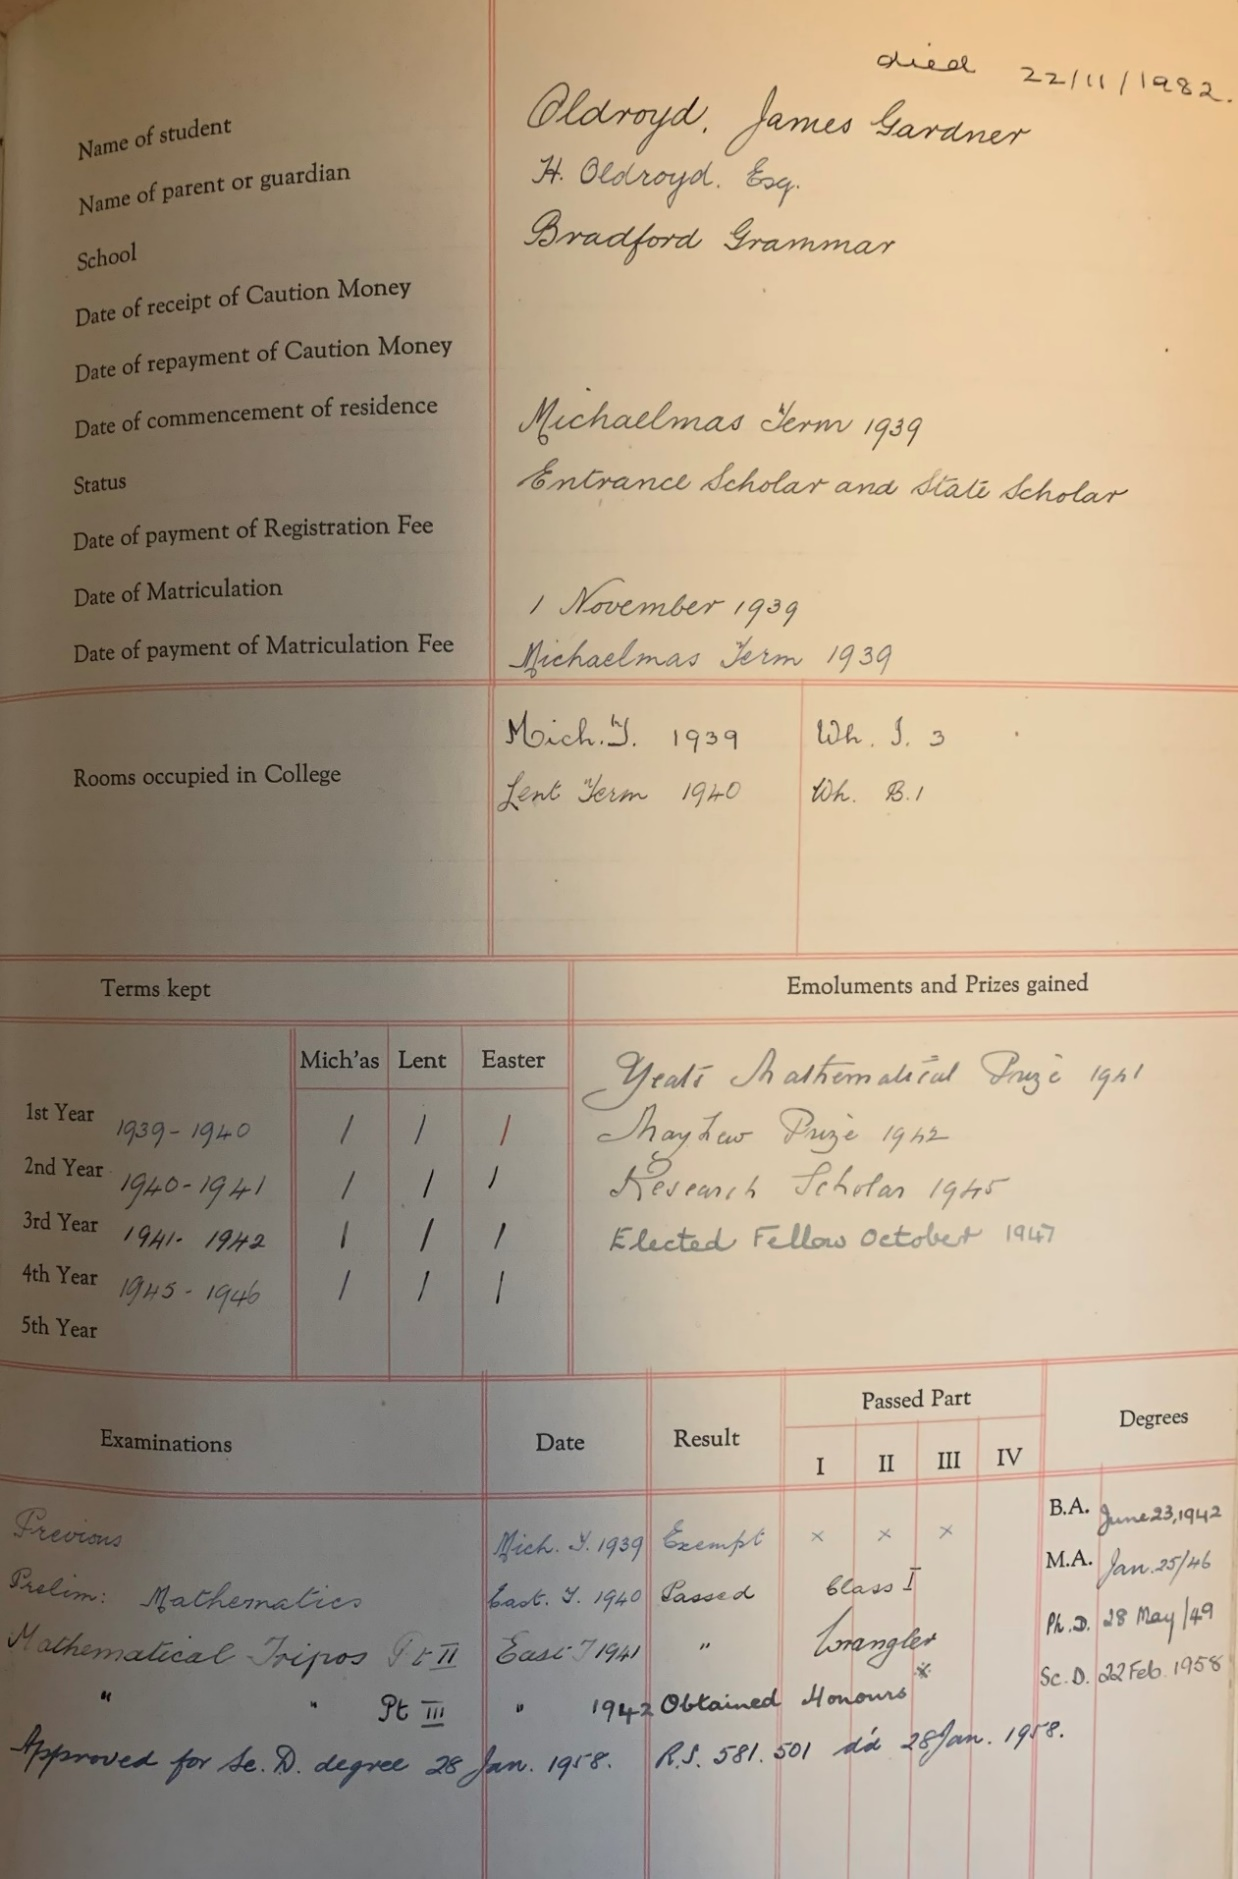 died 22/11/1982.
Name of student Oldroyd, James Gardner
Name of parent or guardian H. Oldroyd. Esq.
School Bradford Grammar
Date of receipt of Caution Money
Date of repayment of Caution Money
Date of commencement of residence Michaelmas Term 1939
Status Entrance Scholar and State Scholar
Date of payment of Registration Fee
Date of Matriculation 1 November 1939
Date of payment of Matriculation Fee Michaelmas Term 1939
Rooms occupied in College
Mich. T. 1939 Wh. I. 3
Lent Term 1940 Wh. B.1
Terms kept Emoluments and Prizes gained
Mich'as Lent Easter
1st Year 1939-1940 / / /
2nd Year 1940-1941 / / /
3rd Year 1941-1942 / / /
4th Year 1945-1946 / / /
5th Year
Yeats Mathematical Prize 1941
Mayhew Prize 1942
Research Scholar 1945
Elected Fellow October 1947
Examinations Date Result Passed Part Degrees
I II III IV
Previous Mich. T. 1939 Exempt × × × B.A. June 23, 1942
Prelim: Mathematics East. T. 1940 Passed Class I M.A. Jan. 25/46
Mathematical Tripos Pt II East T 1941 " Wrangler Ph.D. 28 May/49
" " Pt III " 1942 Obtained Honours* Sc.D. 22 Feb. 1958
Approved for Sc.D. degree 28 Jan. 1958. R.S. 581.501 dd 28 Jan. 1958.